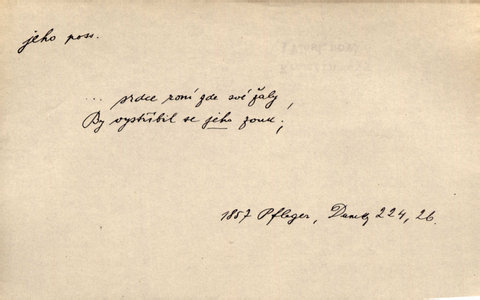 jeho poss.
... srdce roní zde své žaly,
By vystříbil se jeho zouk;
1857 Pfleger, Dumky 224, 26.